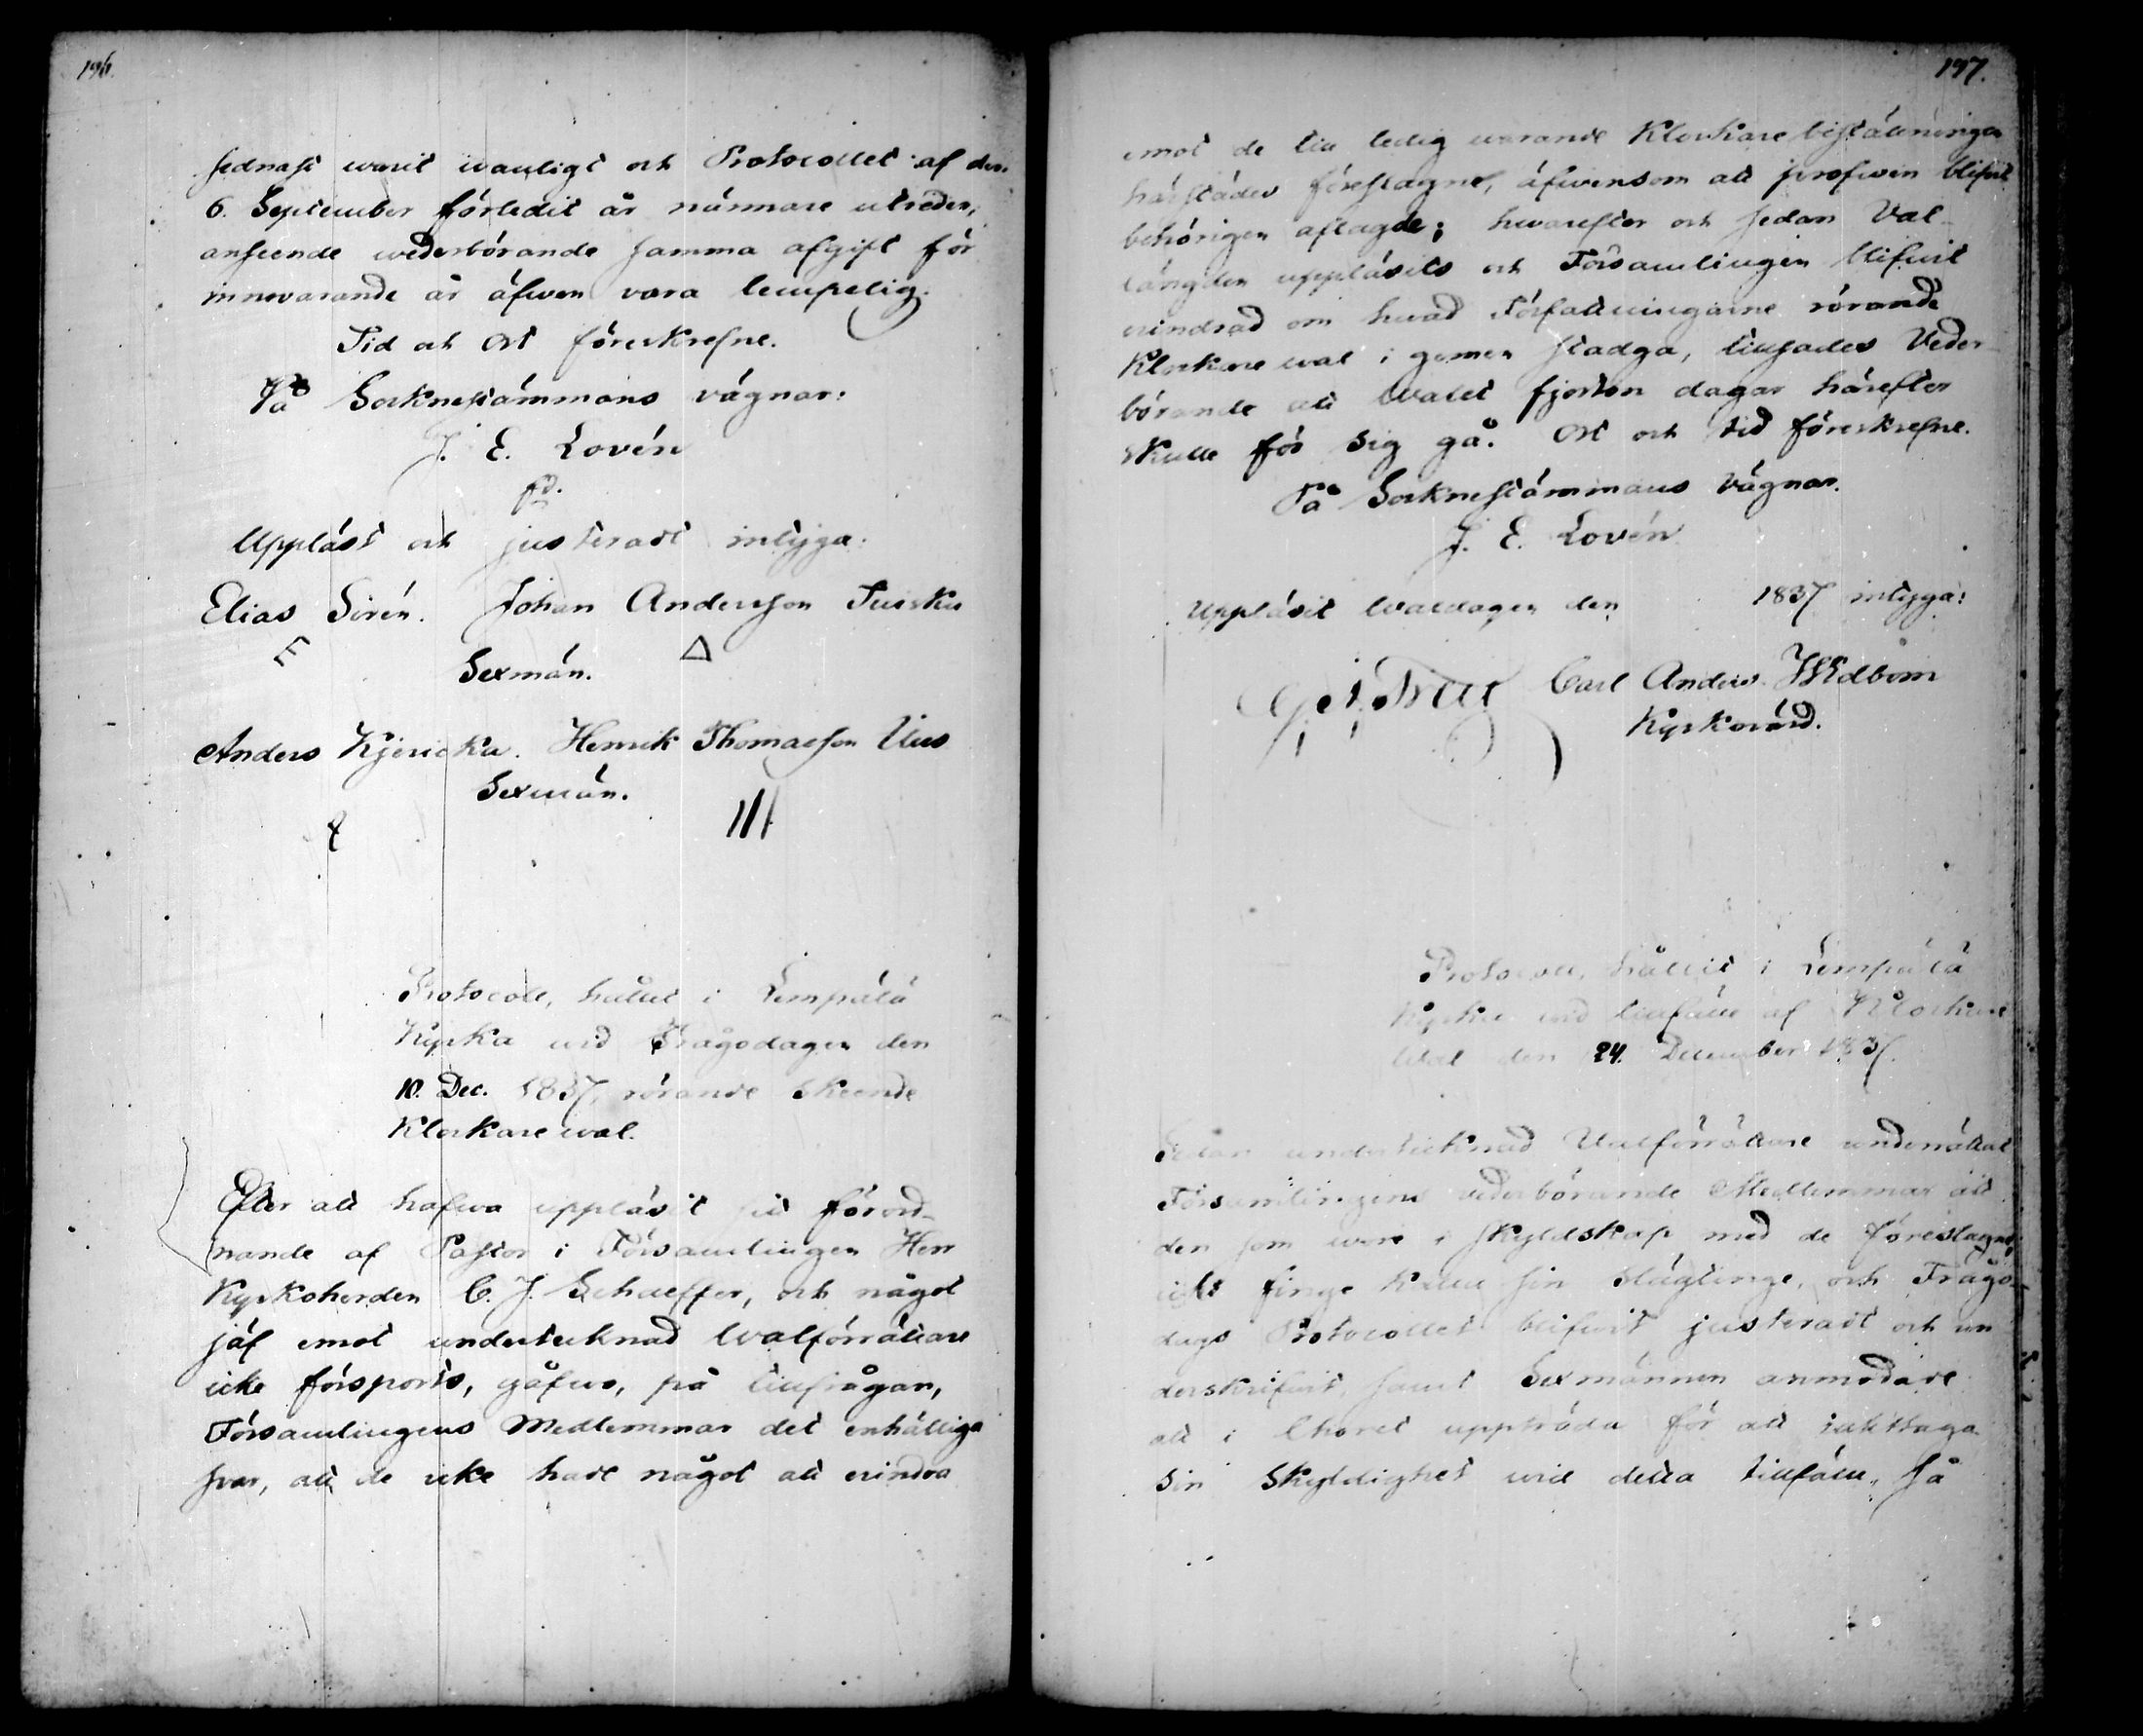 196.
sednast warit wanligt och Protocollet af den
6. September förledit år närmare utreder,
anseende wederbörande samma afgift för
innevarande år äfwen vara lempelig.
Tid och Ort föreskrefne.
På Socknestämmans vägnar:
J. E. Lovén
Uppläst och justeradt intyga:
Elias Sirén. Johan Andersson Tuisku
E Δ
Sexmän.
Anders Kjericka. Henrik Thomasson Uus
Sexmän.
III
Protocoll, hållet i Lempälä
Kyrka vid Frågodagen den
10. Dec. 1837, rörande skeende
Klockare wal.
Efter att hafwa uppläsit sit förord-
nande af Pastor i Församlingen Herr
Kyrkoherden C. J. Schaeffer, och något
jäf emot undertecknad Walförrättare
icke försports, gåfwo, på tillfrågan,
Församlingens Medlemmar det enhälliga
svar, att de icke hade något att erindra
197.
emot de till ledig warande Klockare beställningen
härstädes föreslagne, äfwensom att profwen blifwit
behörigen aflagde; hwarefter och sedan Val-
längden uppläsits och Församlingen blifwit
erindrad om hwad Författningarne rörande
Klockare wal i gemen stadga, tillsades Veder-
börande att Walet fjorton dagar härefter
skulle för sig gå. Ort och tid föreskrefne.
På Socknestämmans Vägnar.
J. E. Lovén
Uppläsit Waldagen den 1837 intyga:
Carl Anders Widbom
Kyrkovärd.
Protocoll, hållit i Lempälä
Kyrka vid tillfälle af Klockare
Wal den 24. December 1837.
Sedan undertecknad Valförrättare underrättat
Församlingens vederbörande Medlemmar att
den som wore i skyldskap med de föreslagne,
icke finge kalla sin slägtinge, och Frågo-
dags Protocollet blifwit justeradt och un
derskrifwit, samt Sexmännen anmodade
att i Choret uppträda för att iakttaga
sin skyldighet wid detta tillfälle, så